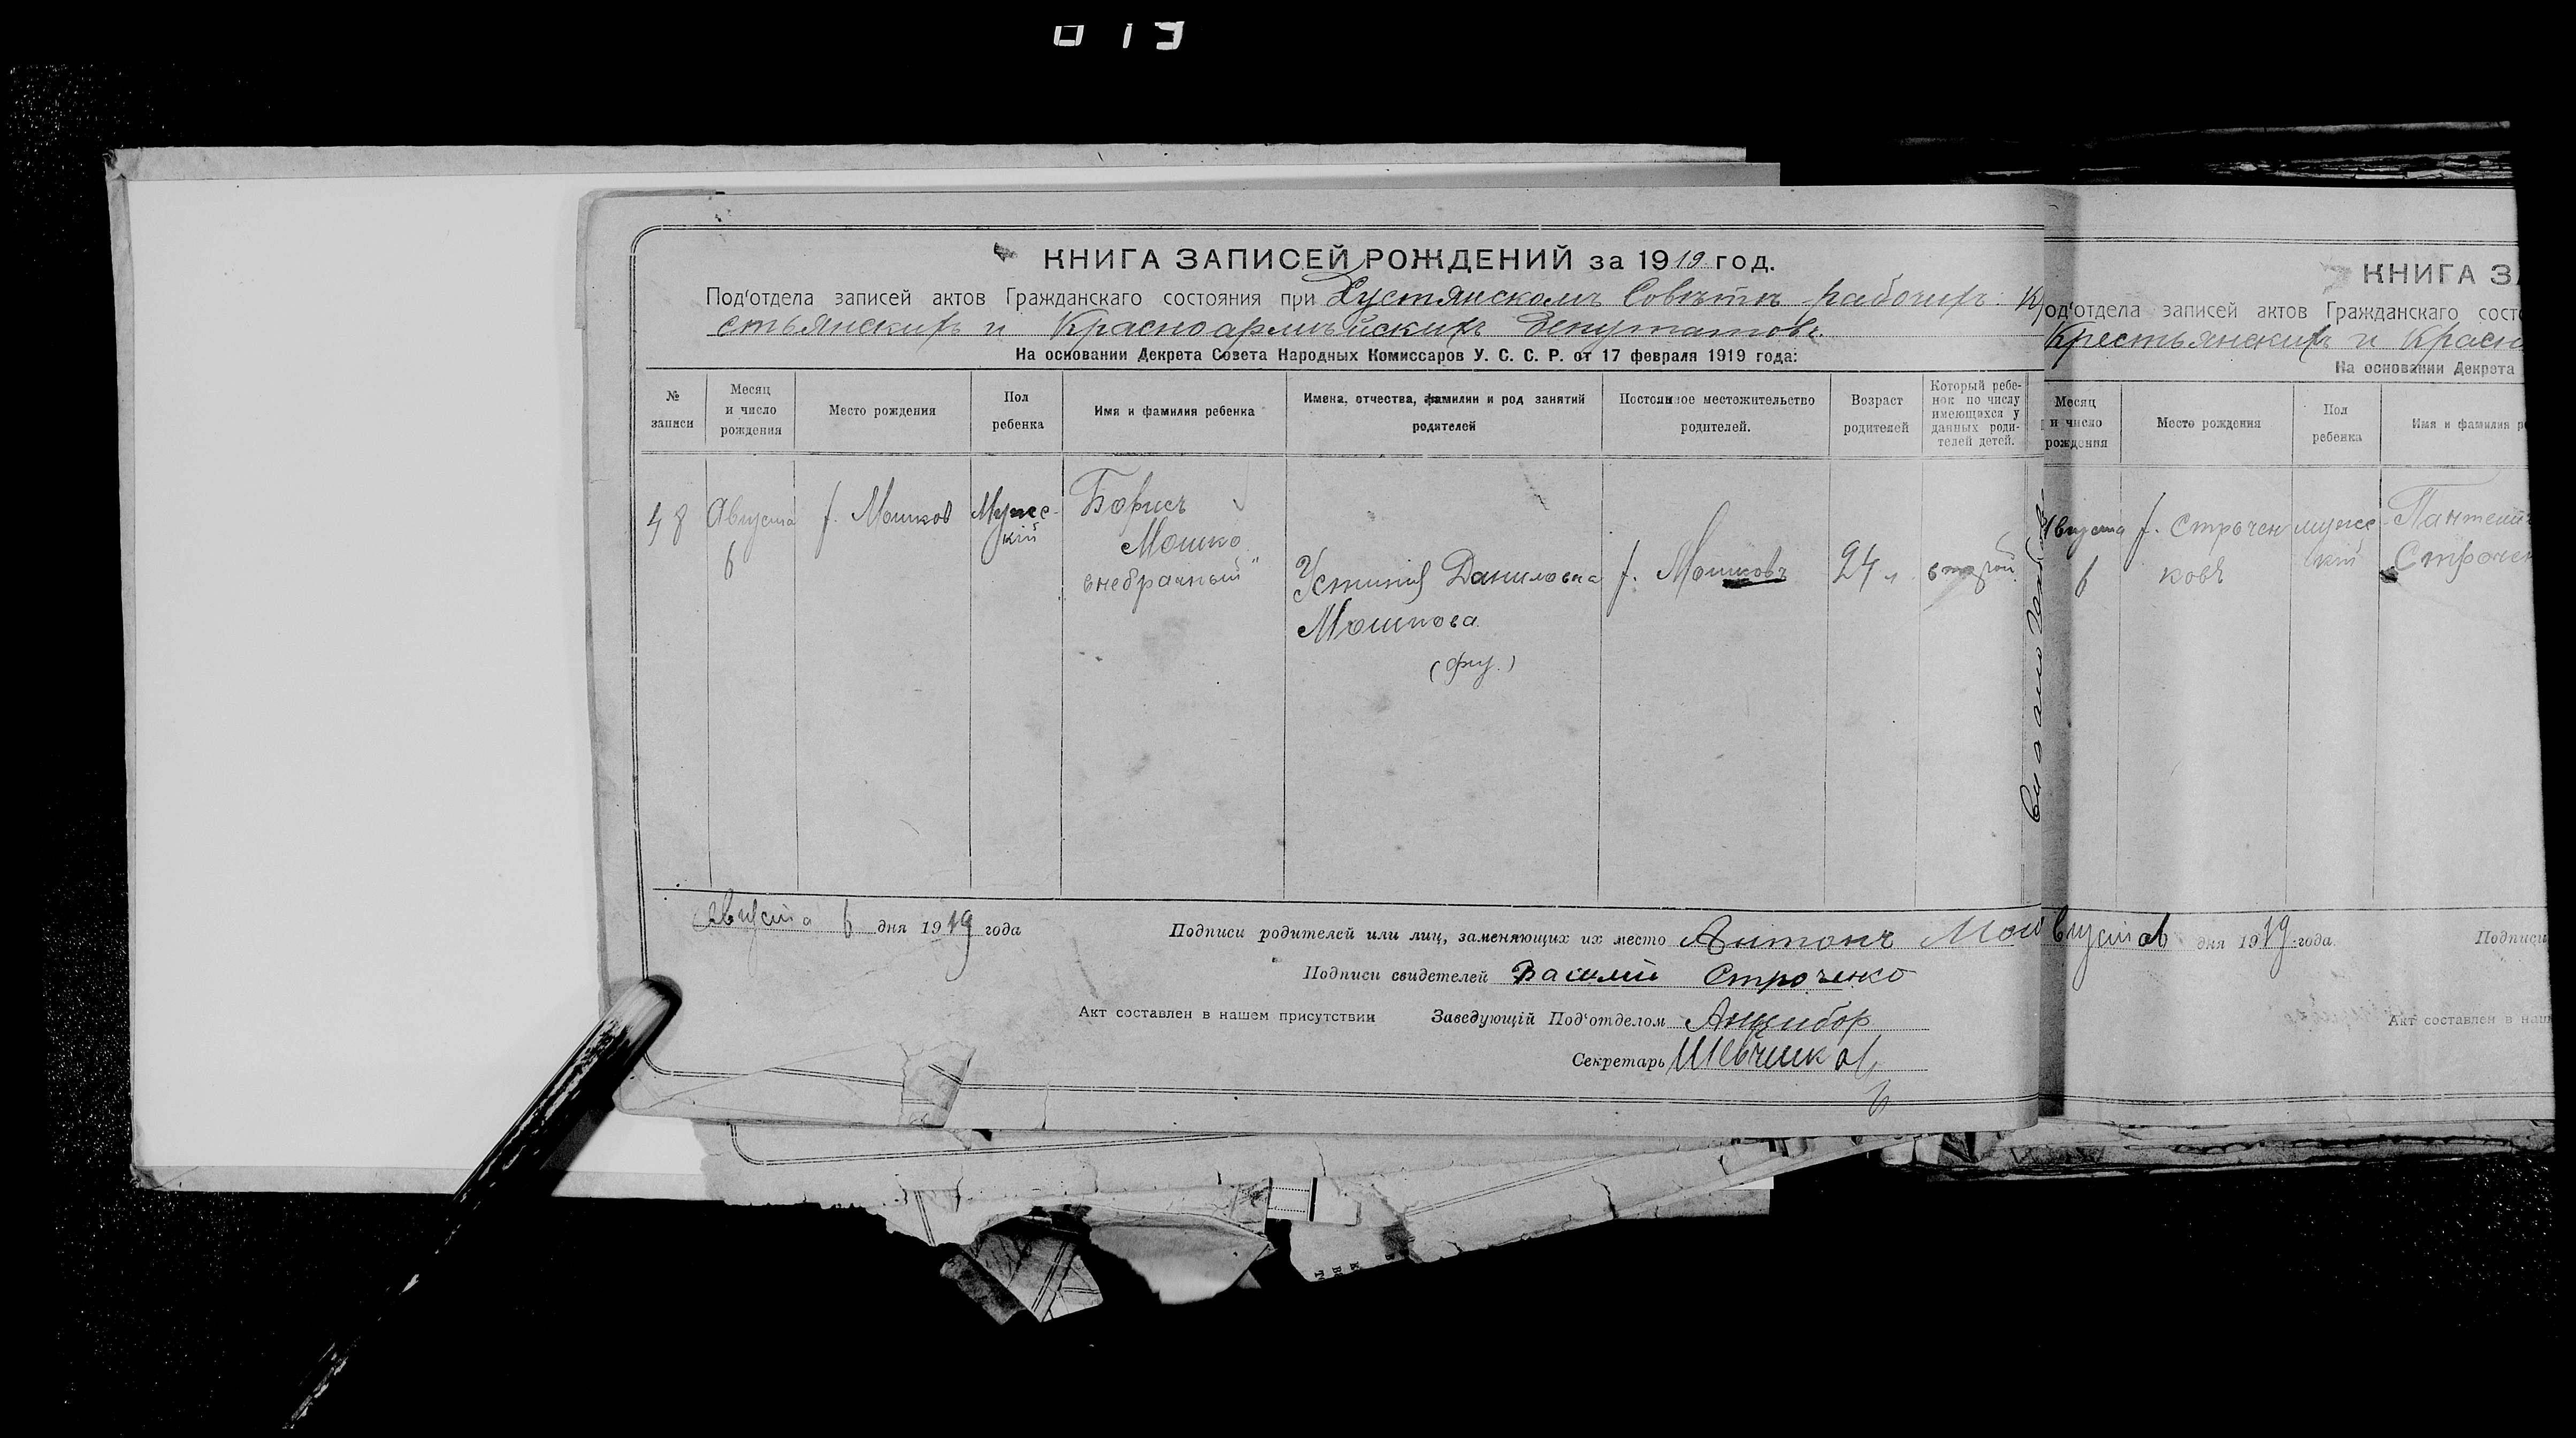 КНИГА ЗАПИСЕЙ РОЖДЕНИЙ за 1919 год.
Под'отдела записей актов Гражданскаго состояния при Хустянскомъ Совѣтѣ рабочихъ
стьянскихъ и Красноармейскихъ Депутатовъ.
На основании Декрета Совета Народных Комиссаров У. С. С. Р. от 17 февраля 1919 года:
№ записи
Месяц и число рождения
Место рождения
Пол ребенка
Имя и фамилия ребенка
Имена, отчества, фамилии и род занятий родителей
Постоянное местожительство родителей.
Возраст родителей
Который ребенок по числу имеющихся у данных родителей детей.
48
Августа 6
х. Мошков
Мужескій
Борисъ
Мошко
внебрачный"
Устинія Даниловна
Мошкова
х. Мошковъ
24 л.
второй
Августа 6 дня 1919 года
Подписи родителей или лиц, заменяющих их место Антонъ
Подписи свидетелей Василій Строченко
Акт составлен в нашем присутствии Заведующій Под'отделом Анцибор
Секретарь
КНИГА З
од'отдела записей актов Гражданскаго сост
Крестьянскихъ и Красн
На основании Декрета
Месяц и число рождения
Место рождения
Пол ребенка
Имя и фамилия р
Августа 6
х. Строченковъ
мужескій
Строчен
дня 1919 года.
Подписи
Акт составлен в наш